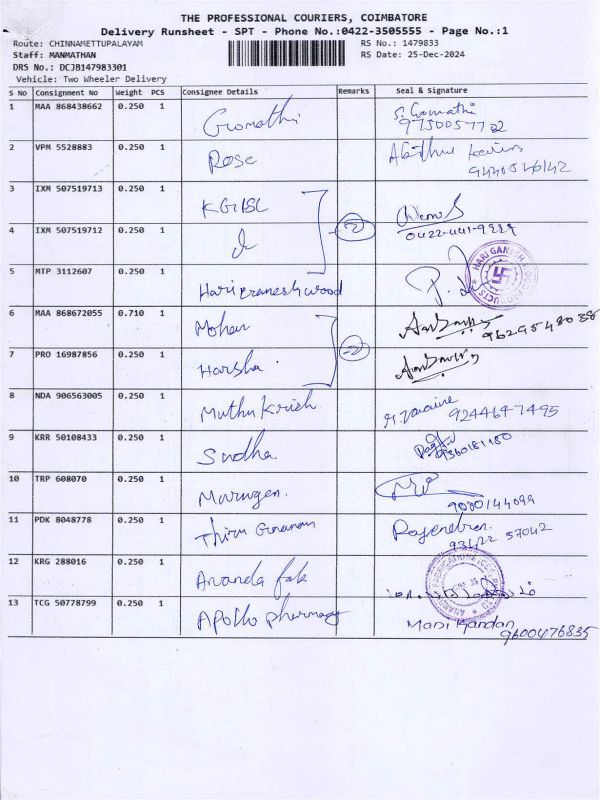 THE PROFESSIONAL COURIERS, COIMBATORE
Delivery Runsheet - SPT - Phone No.:0422-3505555 - Page No.:1
Route: CHINNAMETTUPALAYAM RS No.: 1479833
Staff: MANMATHAN RS Date: 25-Dec-2024
DRS No.: DCJB147983301
Vehicle: Two Wheeler Delivery
S No Consignment No Weight PCS Consignee Details Remarks Seal & Signature
1 MAA 868438662 0.250 1 Gomathi S. Gomathi
9750057722
2 VPM 5528883 0.250 1 Rose
3 IXM 507519713 0.250 1 KGISL
4 IXM 507519712 0.250 1 2 0422-441-9999
5 MTP 3112607 0.250 1 Hari Ganesh wood HARI GANESH WOOD PRODUCTS
6 MAA 868672055 0.710 1 Mohan 9629548038
7 PRO 16987856 0.250 1 Harsha 2
8 NDA 906563005 0.250 1 Muthu Krish 9244647495
9 KRR 50108433 0.250 1 Sudha 9360181180
10 TRP 608070 0.250 1 Murugen. 9080144099
11 PDK 8048778 0.250 1 Thiru Gunanam Rajendran.
93422 57042
12 KRG 288016 0.250 1 Ananda fab
13 TCG 50778799 0.250 1 Apollo pharmacy Manikandan
9600476835